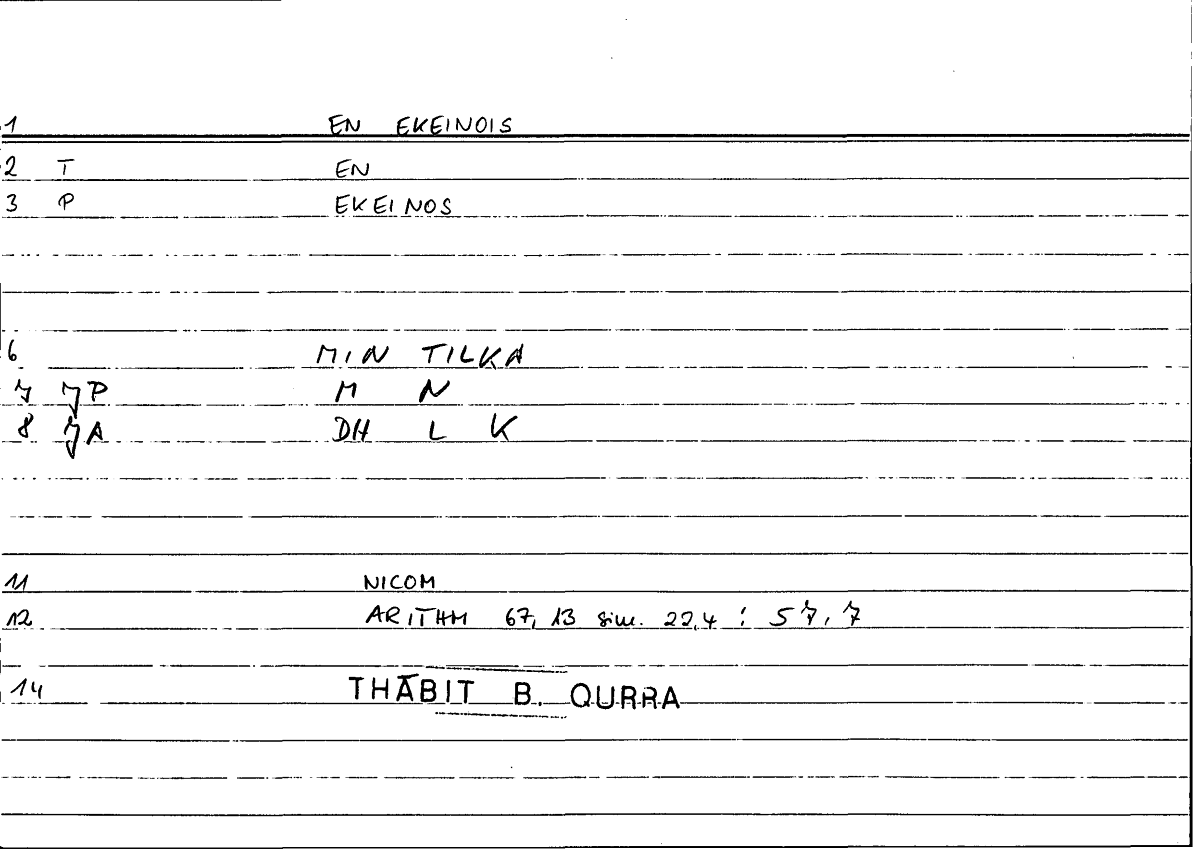 1 EN EKEINOIS
2 T EN
3 P EKEINOS
6 MIN TILKA
7 JP M N
8 JA DH L K
11 NICOM
12 ARITHM 67, 13 sim. 22,4 : 57, 7
14 THĀBIT B. QURRA